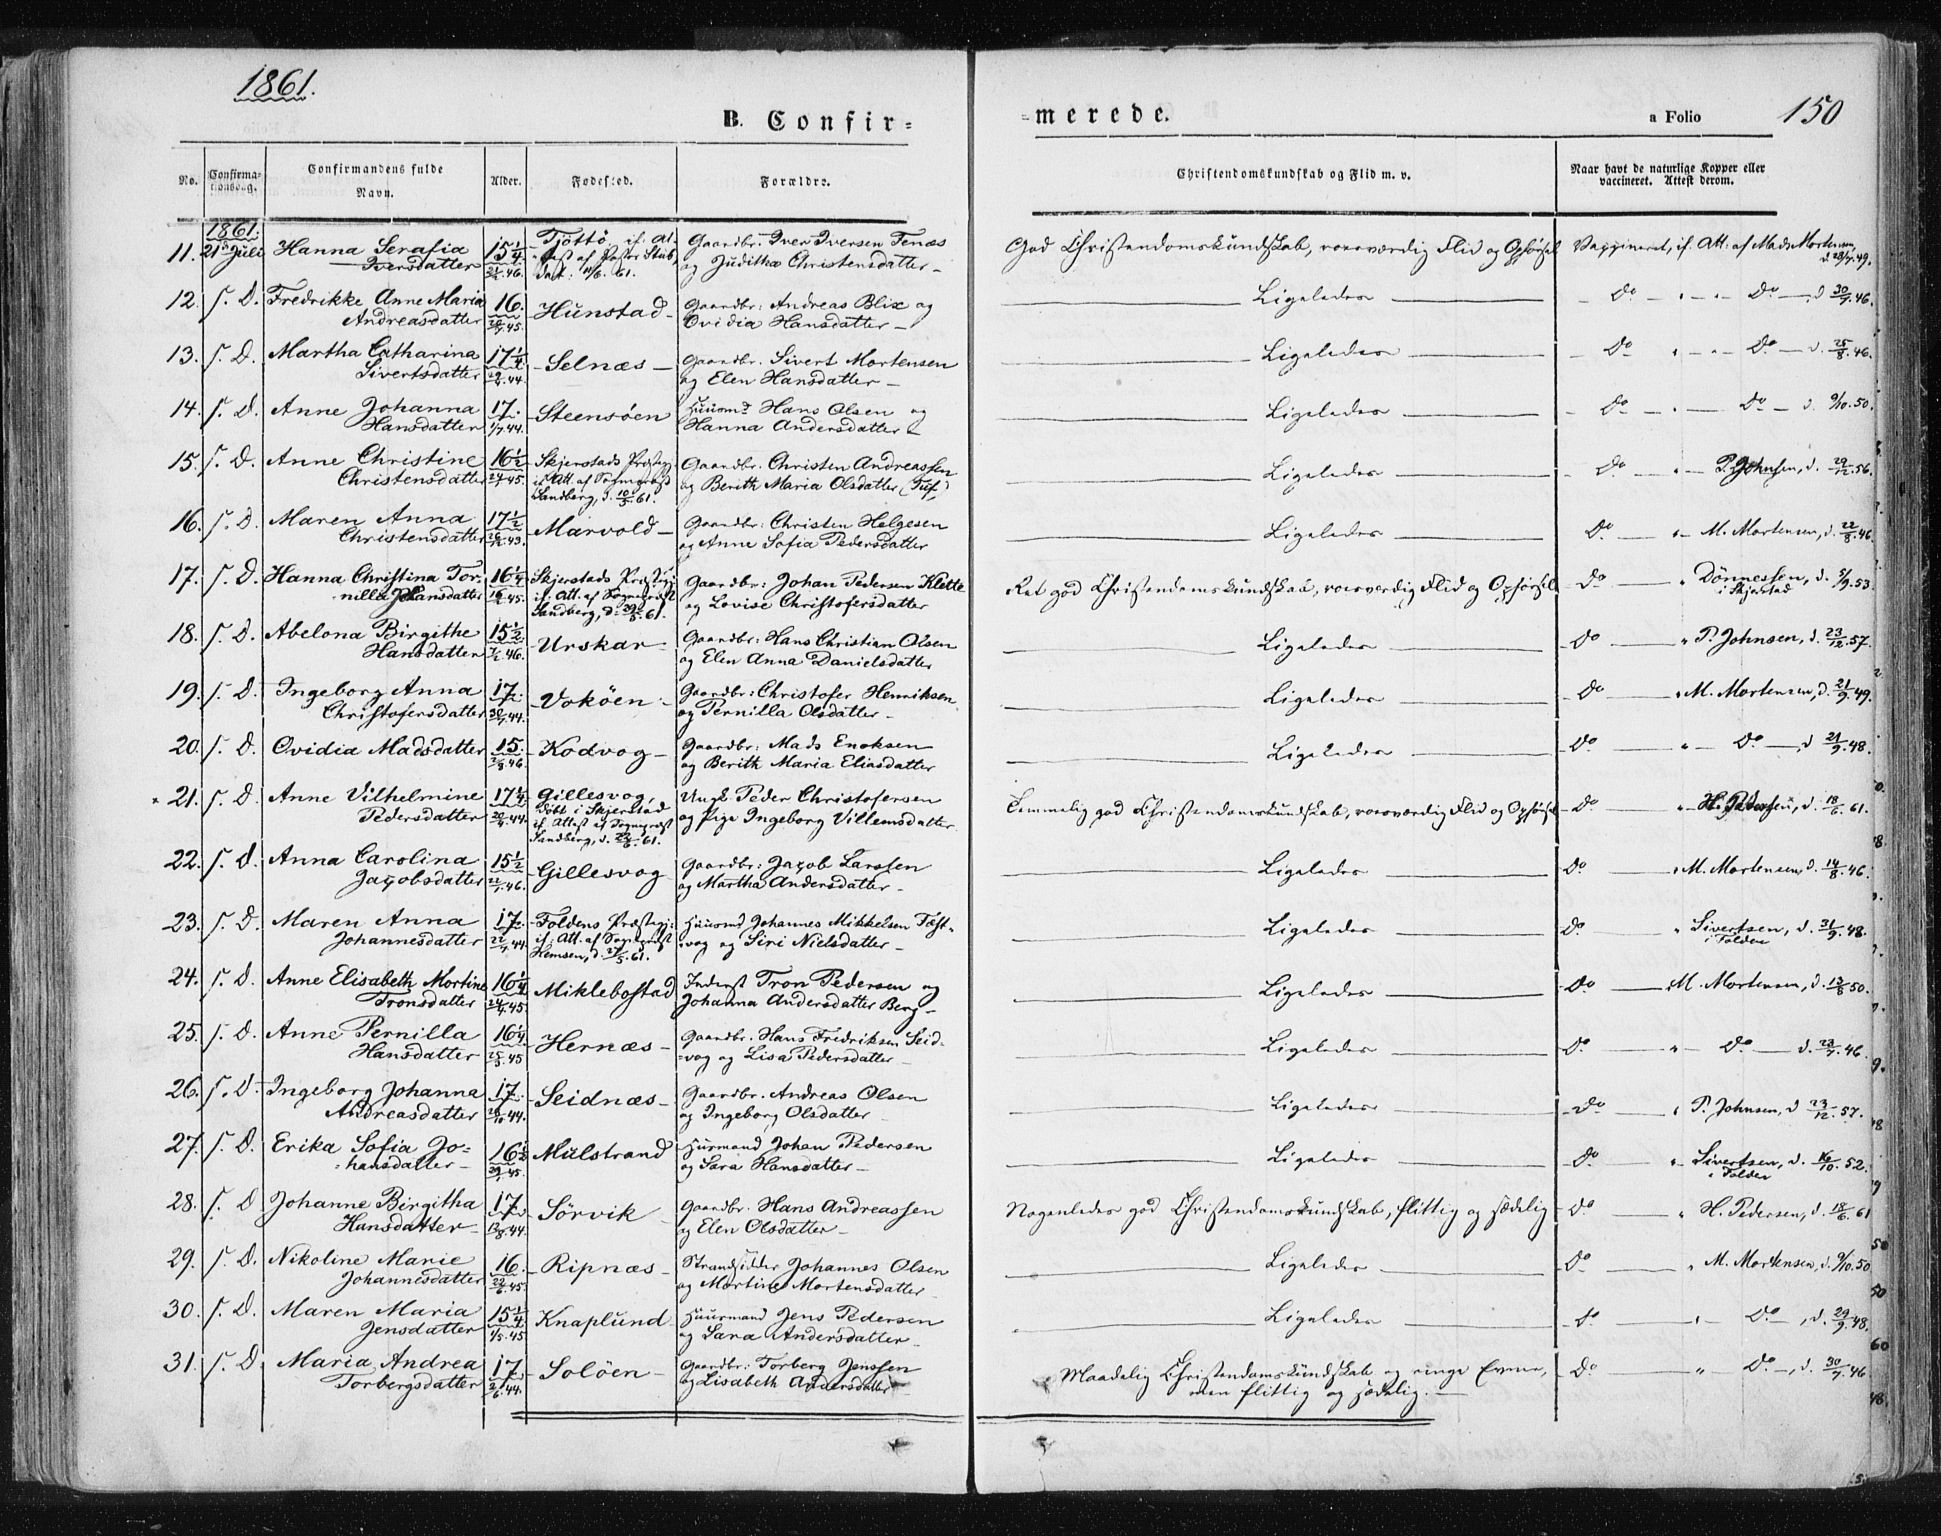 1861.
B. Confir=
=merede.
a Folio 150
No. Confirma-tionsdag. Confirmandens fulde Navn. Alder. Fødested. Forældre. Christendomskundskab og Flid m. v. Naar havt de naturlige Kopper eller vaccineret. Attest derom.
1861.
11. 21de Juli Hanna Serafia Iversdatter 15 1/4 Tjöttö, if. At- Gaardbr. Iver Iversen Tenæs og Juditha Christensdatter God Christendomskundskab, roesværdig Flid og Opförsel Vaxxineret, if. Att. af Mads Mortensen, d. 28/7.49.
12. s. D. Fredrikke Anne Maria Andreasdatter 16. Hunstad Gaardbr: Andreas Blix og Ovidia Hansdatter Ligeledes Do Do d. 30/7.46.
13. s. D. Martha Catharina Sivertsdatter 17 1/4 Selnæs Gaardbr. Sivert Mortensen og Elen Hansdatter Ligeledes Do Do d. 25/8.46.
14. s. D. Anne Johanna Hansdatter 17. 1/7.44. Steensöen Huusmd Hans Olsen og Hanna Andersdatter Ligeledes Do Do d. 9/10.50.
15. s. D. Anne Christine Christensdatter 16 1/2 Skjerstads Præstegj: if. Att. af Sognepræst Sandberg, d. 10/5.61. Gaardbr. Christen Andreassen og Berith Maria Olsdatter Ligeledes Do P. Johnsen, d. 29/12.56.
16. s. D. Maren Anna Christensdatter 17 1/2 Marvold Gaardbr: Christen Helgesen og Anne Sofia Pedersdatter Ligeledes Do M. Mortensen, d. 22/8.46.
17. s. D. Hanna Christina Tor-nilla Johansdatter 16 1/4 Skjerstads Præstegj: if. Att. af Sognepræst Sandberg, d. Gaardbr: Johan Pedersen Klette og Lovise Christofersdatter Ret god Christendomskundskab, roesværdig Flid og Opförsel Do Dönnessen, i Skjerstad d. 5/9.53.
18. s. D. Abelona Birgithe Hansdatter 15 1/2 Urskar Gaardbr: Hans Christian Olsen og Elen Anna Danielsdatter Ligeledes Do P. Johnsen, d. 23/12.57.
19. s. D. Ingeborg Anna Christofersdatter 17. Voköen Gaardbr: Christofer Henriksen og Pernilla Olsdatter Ligeledes Do M. Mortensen, d. 21/9.49.
20. s. D. Ovidia Madsdatter 15. Kodvog Gaardbr: Mads Enoksen og Berith Maria Eliasdatter Ligeledes Do Do d. 21/9.48.
21. s. D. Anne Vilhelmine Pedersdatter 17 1/4 Gillesvog, döbt i Skjerstad if. Attest af Sognepræst Sandberg, d. Ungk. Peder Christofersen og Pige Ingeborg Villemsdatter Temmelig god Christendomskundskab, roesværdig Flid og Opförsel Do H. Pedersen, d. 18/6.61.
22. s. d. Anna Carolina Jacobsdatter 15 1/2 Gillesvog Gaardbr: Jacob Larssen og Martha Andersdatter Ligeledes Do M. Mortensen, d. 14/8.46.
23. s. D. Maren Anna Johannesdatter 17. Foldens Præstegj: if. Att. af Sognepræst Hemsen, d. Huusmd Johannes Mikkelsen Fæst-vog og Siri Nielsdatter Ligeledes Do Sivertsen, i Folden d. 31/9.48.
24. s. D. Anne Elisabeth Mortine Tronsdatter 16 1/4 Miklebostad Inderst Tron Pedersen og Johanna Andersdatter Berg Ligeledes Do M. Mortensen, d. 13/8.50.
25. s. D. Anne Pernilla Hansdatter 16 1/4 Hernæs Gaardbr. Hans Fredriksen Seid-vog og Lisa Pedersdatter Ligeledes Do Do d. 23/7.46.
26. s. D. Ingeborg Johanna Andreasdatter 17. Seidnæs Gaardbr. Andreas Olsen og Ingeborg Olsdatter Ligeledes Do P. Johnsen, d. 23/12.57.
27. s. D. Erika Sofia Jo-hansdatter 16 1/2 Mulstrand Huusmand Johan Pedersen og Sara Hansdatter Ligeledes Do Sivertsen, i Folden d. 16/10.52.
28. s. D. Johanne Birgitha Hansdatter 17. 13/8.44. Sörvik Gaardbr. Hans Andreassen og Elen Olsdatter Nogenledes god Christendomskundskab, flittig og sædelig Do H. Pedersen, d. 18/6.61
29. s. D. Nikoline Marie Johannesdatter 16. 22/6.45. Ripnæs Strandsidder Johannes Olsen og Mortine Mortensdatter Ligeledes Do M. Mortensen, d. 9/10.50
30. s. D. Maren Maria Jensdatter 15 1/4 1/5.45 Knaplund Huusmand Jens Pedersen og Sara Andersdatter Ligeledes Do Do d. 29/9.48.
31. s. D. Maria Andrea Torbergsdatter 17. 2/6.44. Solöen Gaardbr: Torberg Jenssen og Lisabeth Andersdatter Maadelig Christendomskundskab og ringe Evner, men flittig og sædelig. Do Do d. 30/7.46